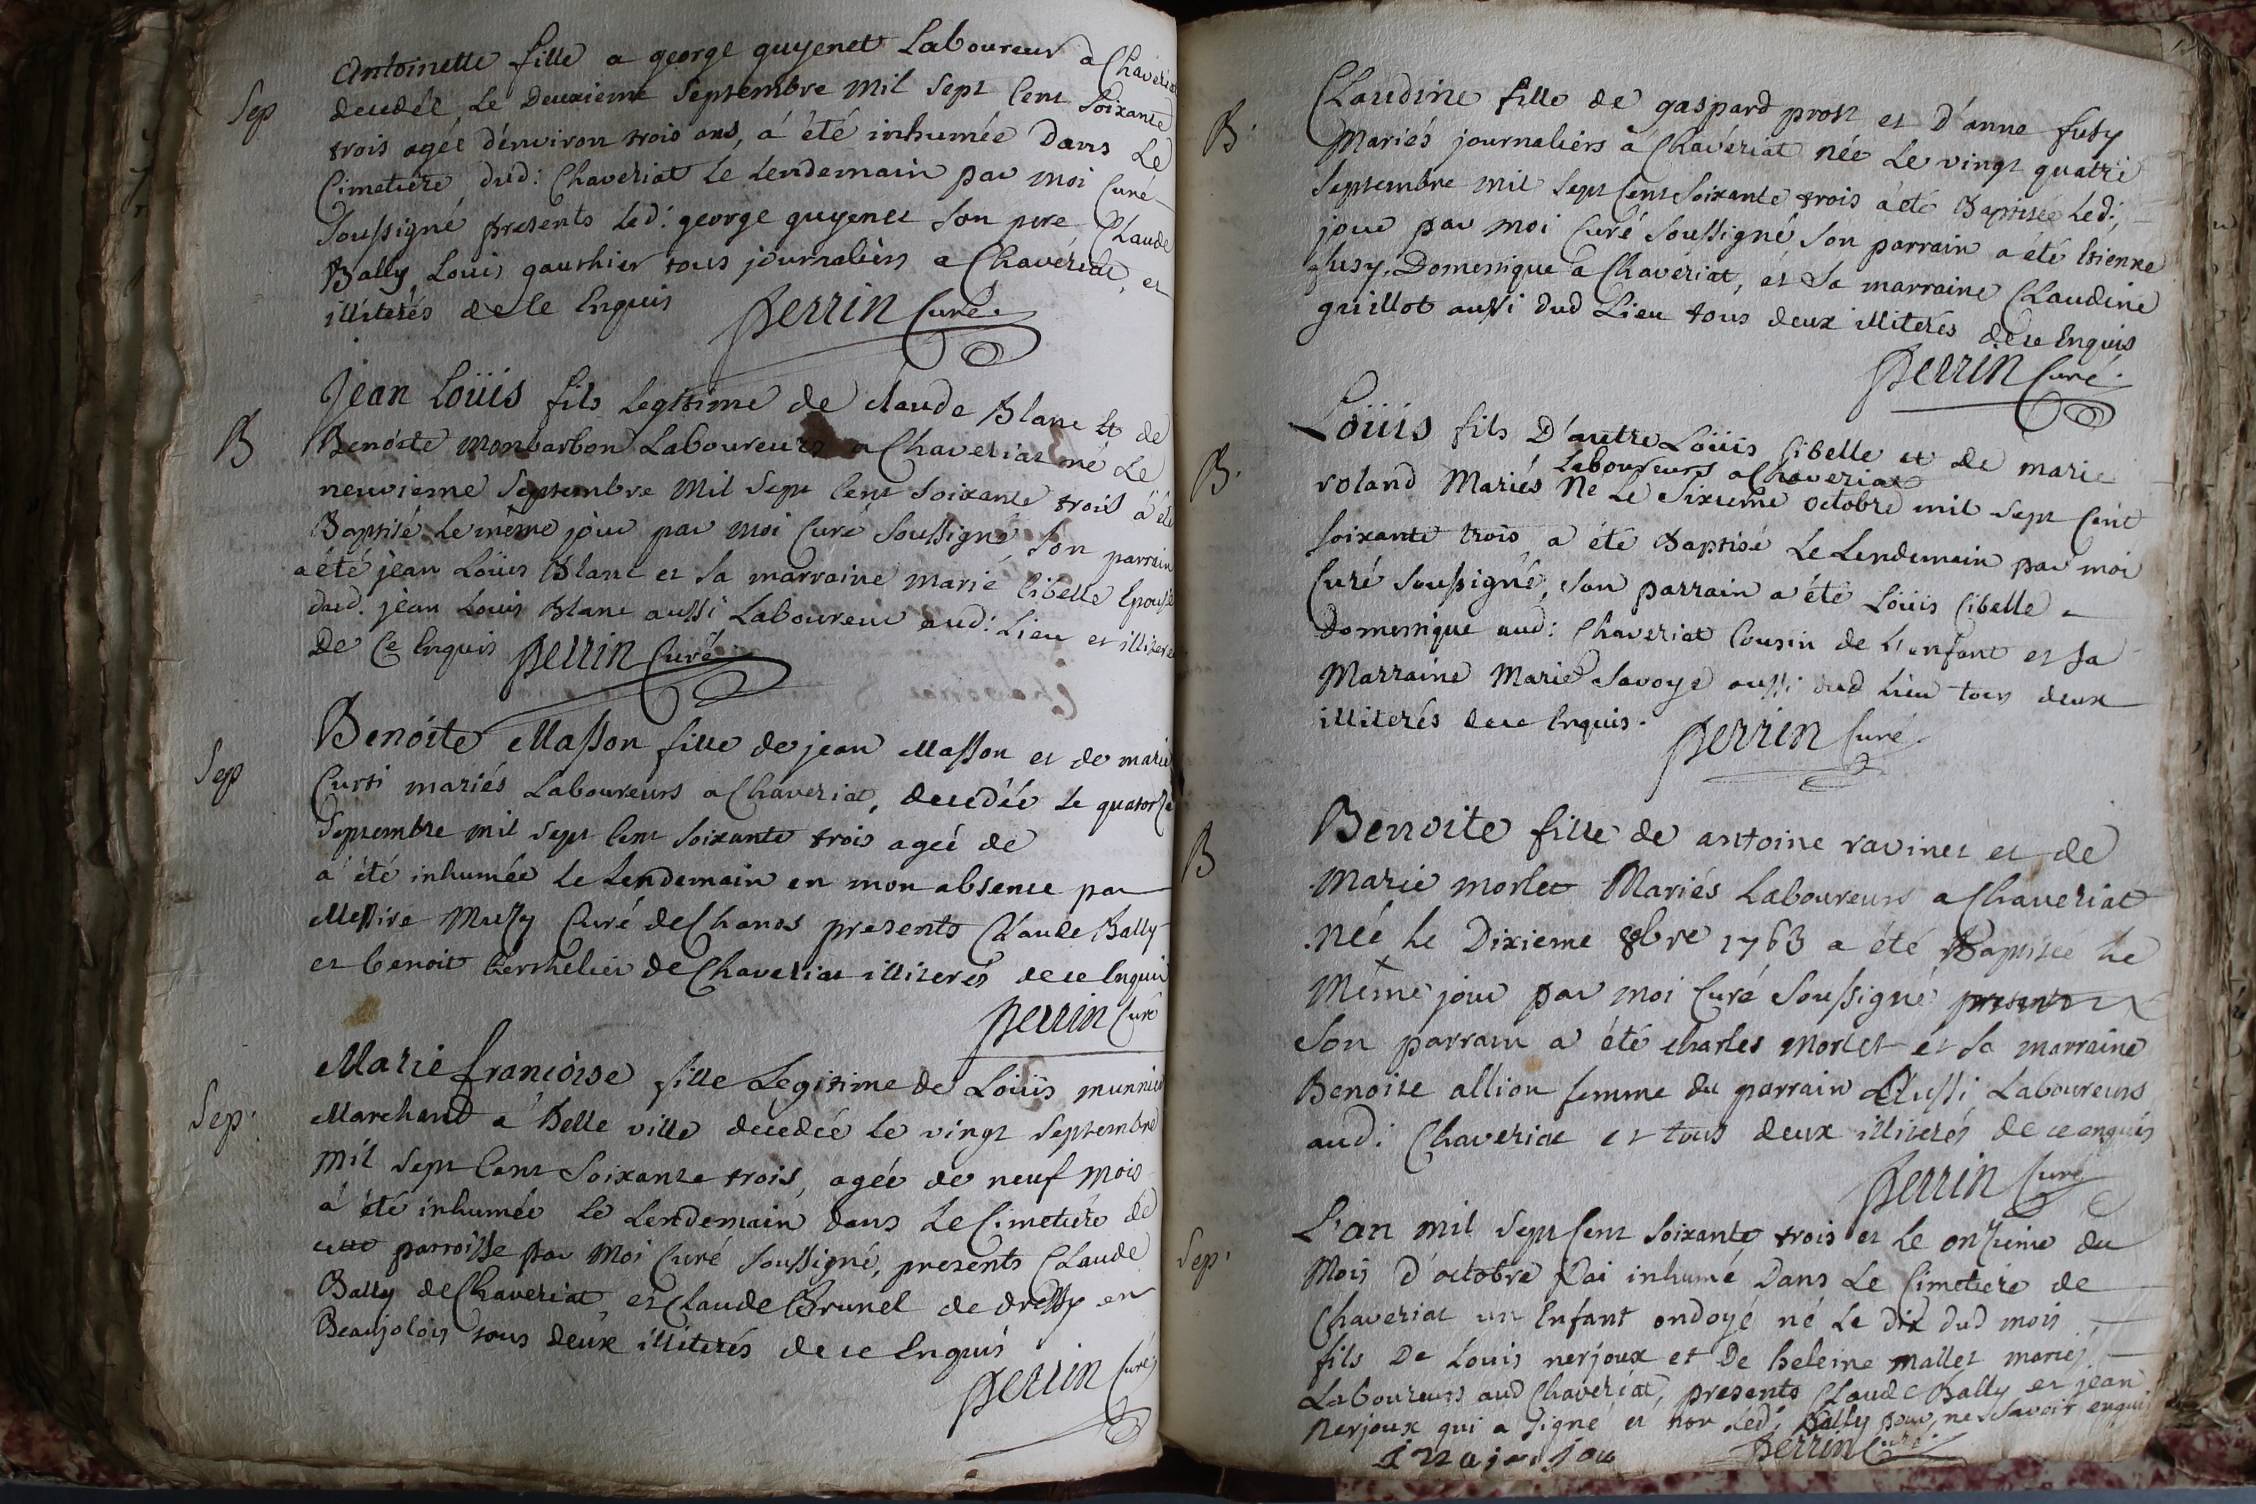 Sep
Antoinette fille a george guyenet Laboureur a Chaveriat
decedée, Le Deuxieme Septembre mil sept Cent Soixante
trois agée d'environ trois ans, á été inhumée Dans Le
Cimetiere dud: Chaveriat Le Lendemain par moi Curé
Soussigné presents led: george guyenet son pere Claude
Bally, Louis gauthier tous journaliers a Chavériat, et
illiterés de ce Enquis Perrin Curé.
B
Jean Loüis fils Legitime de claude Blanc et de
Benoite Monbarbon Laboureurs a Chaveriat né Le
neuvieme Septembre mil sept Cent Soixante trois á été
Baptisé Le même jour par moi Curé Soussigné, son parrain
a été jean Loüis Blanc et sa marraine marie Cibelle Epouse
dud. jean Louis Blanc aussi Laboureur aud: Lieu et illiteré
De Ce Enquis Perrin Curé
Sep
Benoite Masson fille de jean Masson et de marie
Curti mariés Laboureurs a Chaveriat, decedée Le quatorze
Septembre mil sept Cent soixante trois agée de
á été inhumée Le Lendemain en mon absence par
Messire Curé de Chanos presents Claude Bally
et benoit berthelier de Chaveriat illiterés de ce Enquis
Perrin Curé
Sep:
Marie françoise fille Legitime de Loüis munnier
Marchand a Belle ville decedée Le vingt Septembre
Mil Sept Cent Soixante trois, agée de neuf mois
á été inhumée Le Lendemain dans Le Cimetiére de
cette parroisse par moi Curé Soussigné, presents Claude
Bally de Chaveriat et Claude Brunel de en
Beaujolois tous deux illiterés de ce Enquis
Perrin Curé
B.
Claudine fille de gaspard prost et D'anne fusy
Mariés journaliers á Chavériat née Le vingt quatre
Septembre mil sept Cent Soixante trois á été Baptisée Led:
jour par moi Curé Soussigné son parrain a été Etienne
fusy. Domestique a Chavériat, et sa marraine Claudine
guillot aussi dud Lieu tous deux illiterés de ce Enquis
Perrin Curé.
B.
Loüis fils D'autre Loüis Cibelle et de marie
Laboureurs a Chaveriat
roland Mariés né Le Sixieme octobre mil sept Cent
soixante trois a été Baptisé Le Lendemain par moi
Curé Soussigné, son parrain a été Loüis Cibelle
Domestique aud: Chaveriat Cousin de L'enfant et sa
Marraine Marie Savoye aussi dud Lieu tous deux
illiterés de ce Enquis. Perrin Curé.
B
Benoite fille de antoine ravinet et de
Marie morlet Mariés Laboureurs a Chaveriat
née Le Dixieme 8bre 1763 a été Baptisée Le
Même jour par moi Curé Soussigné presents
Son parrain a été charles morlet et sa marraine
Benoite allion femme du parrain Aussi Laboureurs
aud: Chaveriat et tous deux illiterés de ce enquis
Perrin Curé
Sep:
L'an mil sept Cent Soixante trois et Le onzieme du
Mois d'octobre J'ai inhumé Dans Le Cimetiere de
Chaveriat un Enfant ondoyé né Le dix dud mois
fils De Louis nerjoux et De heleine mallet mariés
Laboureurs aud Chavériat, presents Claude Bally et jean
Nerjoux qui a signé et non led: Bally pour ne sçavoir enquis
Perrin Curé.